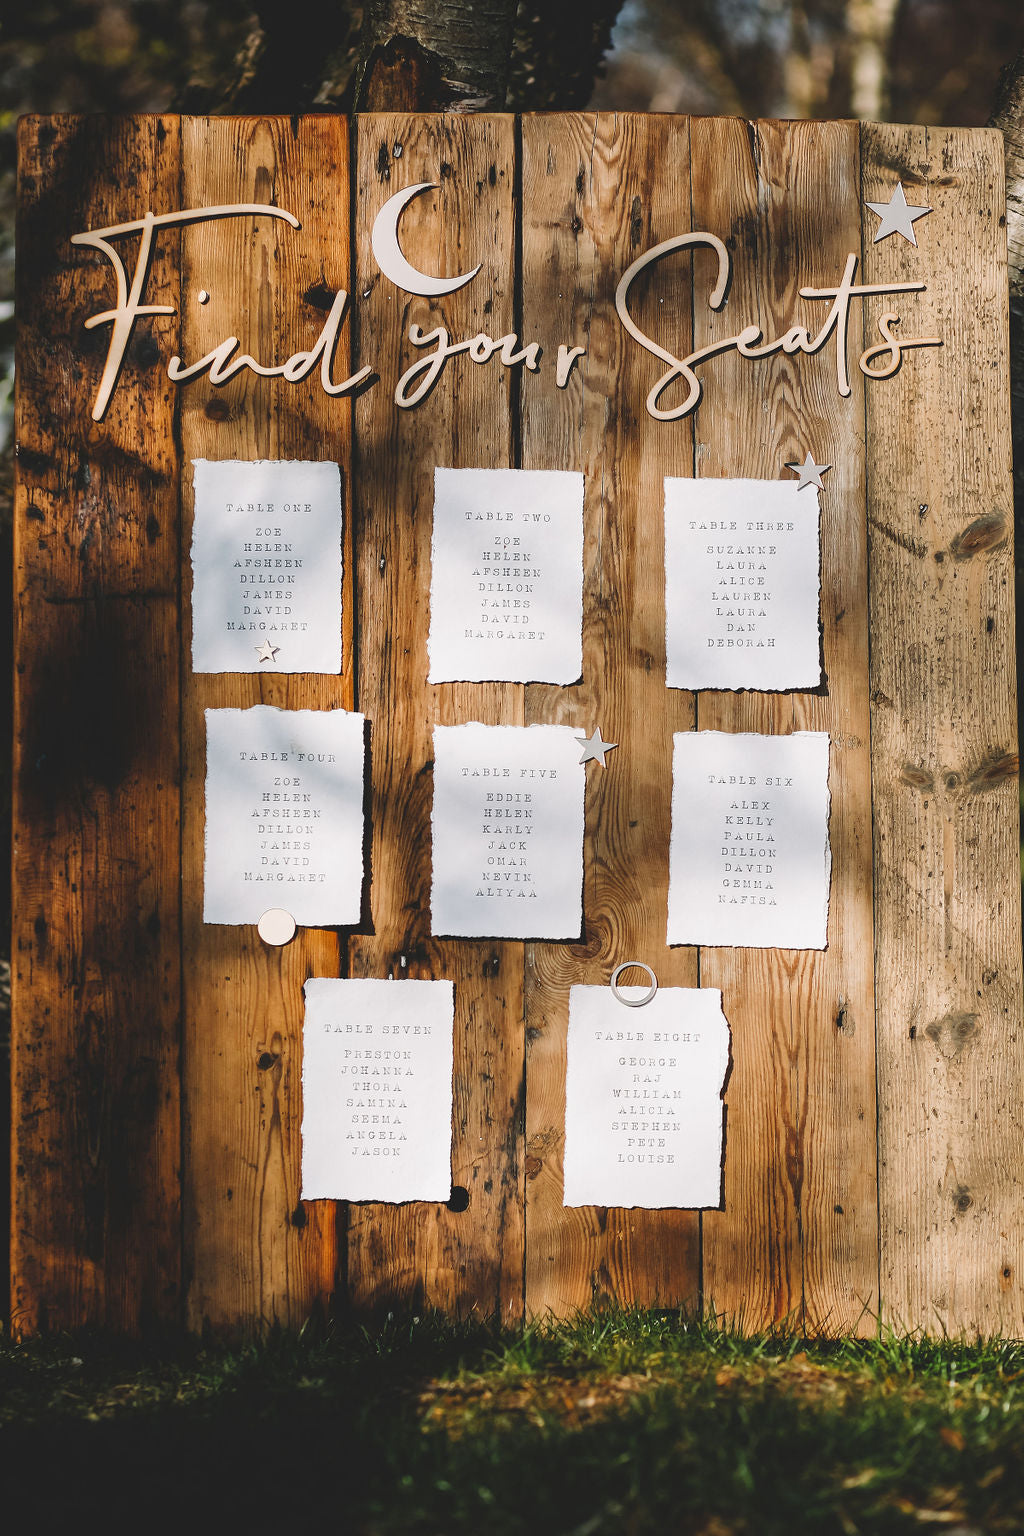 Find your Seats
TABLE ONE
ZOE
HELEN
AFSHEEN
DILLON
JAMES
DAVID
MARGARET
TABLE TWO
ZOE
HELEN
AFSHEEN
DILLON
JAMES
DAVID
MARGARET
TABLE THREE
SUZANNE
LAURA
ALICE
LAUREN
LAURA
DAN
DEBORAH
TABLE FOUR
ZOE
HELEN
AFSHEEN
DILLON
JAMES
DAVID
MARGARET
TABLE FIVE
EDDIE
HELEN
KARLY
JACK
OMAR
NEVIN
ALIYAA
TABLE SIX
ALEX
KELLY
PAULA
DILLON
DAVID
GEMMA
NAFISA
TABLE SEVEN
PRESTON
JOHANNA
THORA
SAMINA
SEEMA
ANGELA
JASON
TABLE EIGHT
GEORGE
RAJ
WILLIAM
ALICIA
STEPHEN
PETE
LOUISE